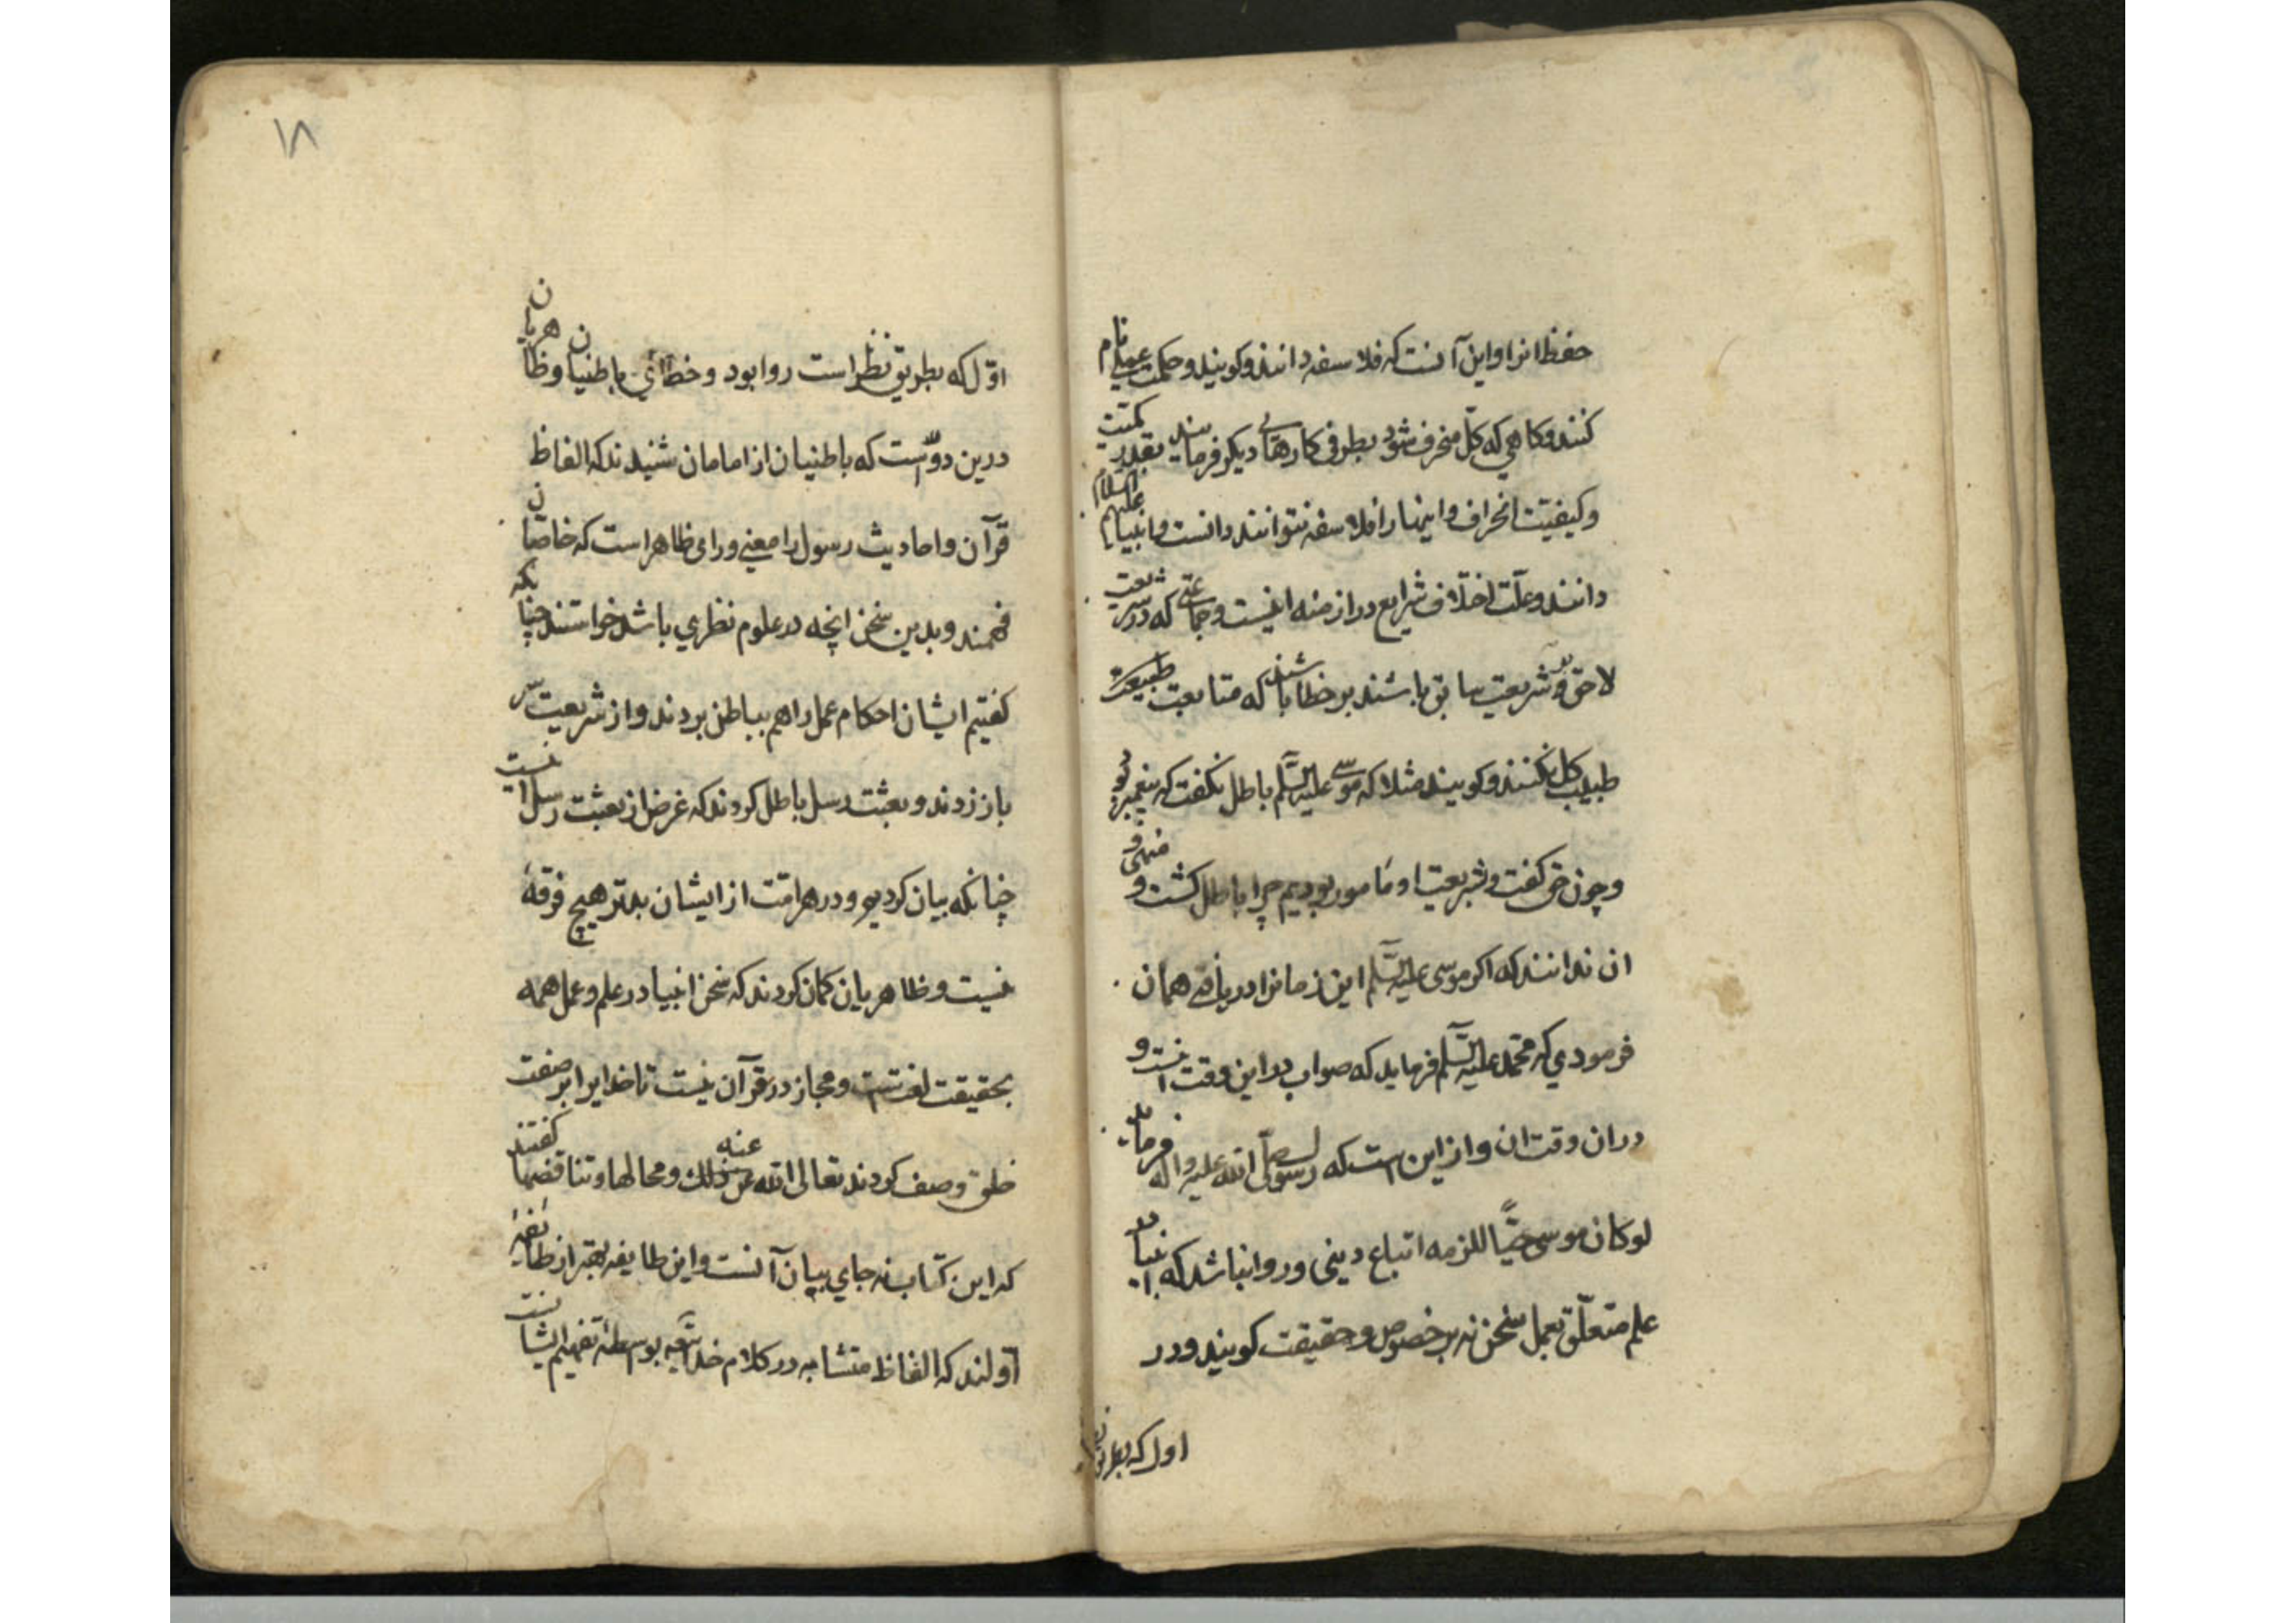 حفظ انرا و این آنست که فلاسفه دانند و کویند و حکمت عملی نام
کنند و کاهی که کل منحرف شود بطرفی کارهای دیکر فرمایند بقدر کمیت
و کیفیت انحراف و اینها را فلاسفه نتوانند دانست و انبیا علیهم السلام
دانند و علت اختلاف شرایع در ازمنه اینست و جماعتی که در شریعت
لاحق و شریعت سابق باشند بر خطا باشند که متابعت طبیعت
طبیب کل نکنند و کویند مثلا که موسی علیه السلم باطل نکفت که پیغمبر بود
و چون حق کفت و بشریعت او مامور بودیم چرا باطل کشت و منهی و
ان ندانند که اکر موسی علیه السلم این زمانرا دریافتی همان
فرمودی که محمد علیه السلم فرماید که صواب در این وقت اینست و
دران وقت ان و از این است که رسول صلی الله علیه واله فرماید
لو کان موسی حیا للزمه اتباع دینی و روا نباشد که انبیا بد
علم متعلق بعمل سخن نه بر خصوص و حقیقت کویند و در
اول که بطریق
١٨
اول که بطریق نظر است روا بود و خطای باطنیان و ظاهریان
درین دو است که باطنیان از امامان شنیدند که الفاظ
قرآن و احادیث رسول را معنی ورای ظاهر است که خاصان
فهمند و بدین سخن انچه در علوم نظری باشد خواستند چنانکه
کفتیم ایشان احکام عمل را هم بباطن بردند و از شریعت سر
باز زدند و بعثت رسل باطل کردند که غرض از بعثت رسل انست
چنانکه بیان کردیم و در هر امت از ایشان بدتر هیچ فرقهٔ
نیست و ظاهریان کمان کردند که سخن انبیا در علم و عمل همه
بحقیقت لغتست و مجاز در قرآن نیست تا خدایرا بر صفت
خلق وصف کردند تعالی الله عن ذلك عنه و محالها و تناقضها کفتند
که این کتاب نه جای بیان آنست و این طایفه بهتر از طایفهٔ
اولند که الفاظ متشابه در کلام خدا بواسطهٔ تفهیم ایشانست